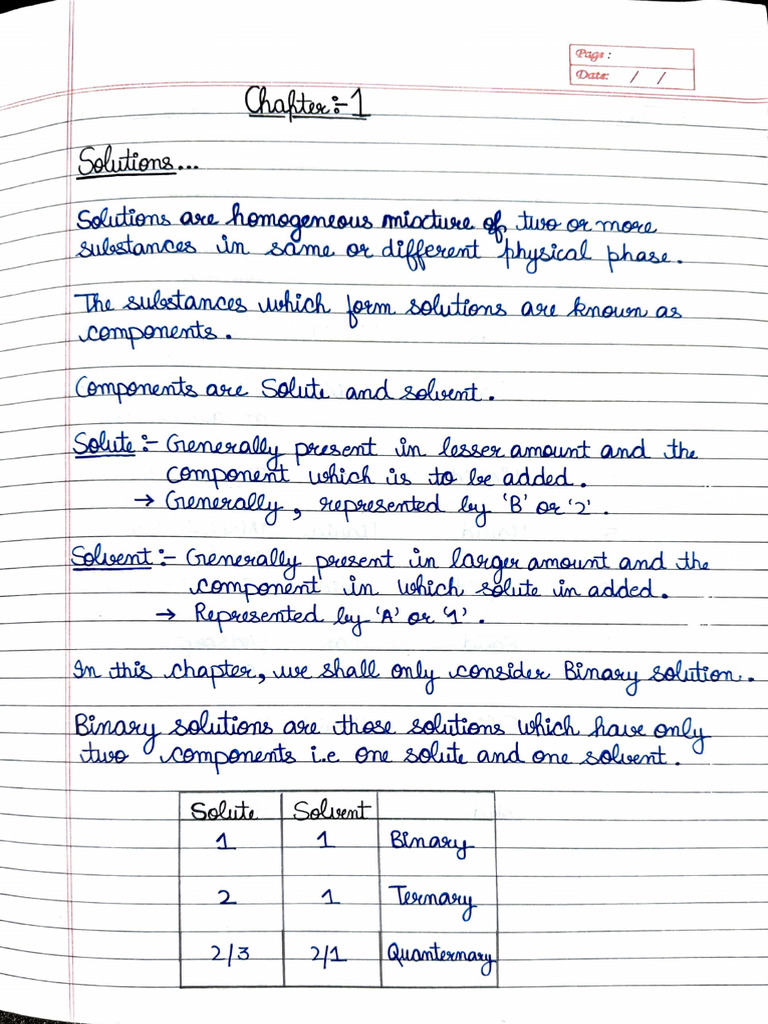 Page:
Date: / /
Chapter:-1
Solutions...
Solutions are homogeneous mixture of two or more
substances in same or different physical phase.
The substances which form solutions are known as
components.
Components are Solute and solvent.
Solute:- Generally present in lesser amount and the
component which is to be added.
→ Generally, represented by 'B' or '2'.
Solvent:- Generally present in larger amount and the
component in which solute in added.
→ Represented by 'A' or '1'.
In this chapter, we shall only consider Binary solution.
Binary solutions are those solutions which have only
two components i.e one solute and one solvent.
Solute Solvent
1 1 Binary
2 1 Ternary
2/3 2/1 Quanternary